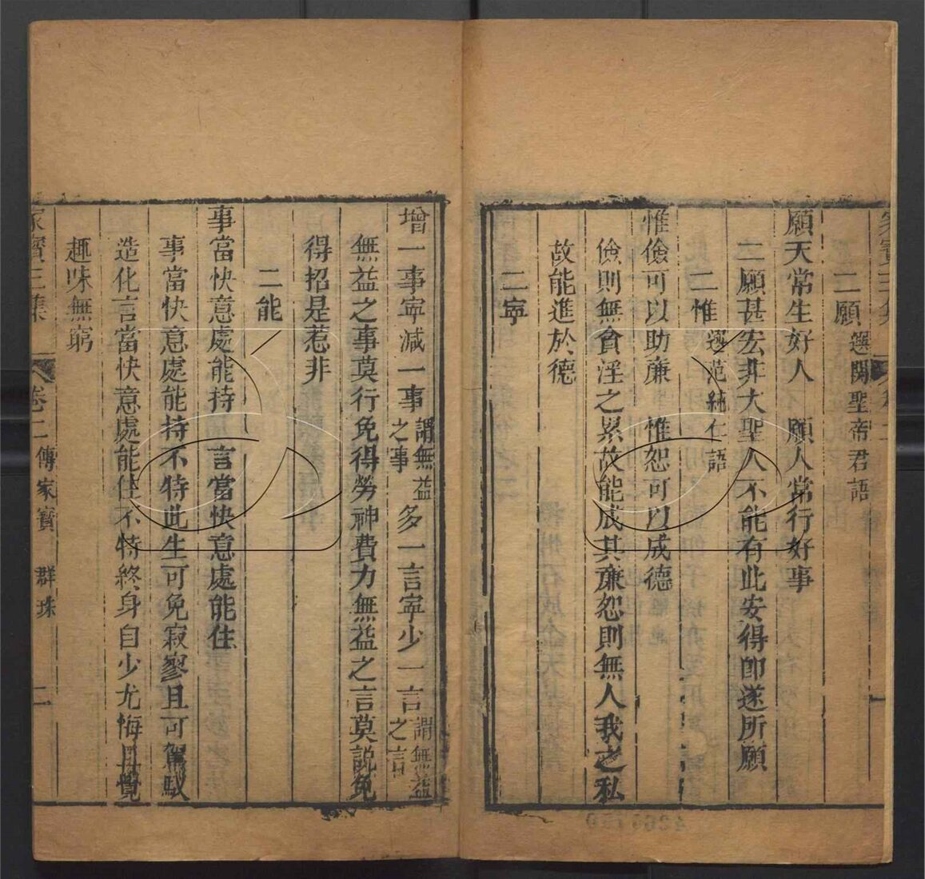 二願 選関聖帝君語
願天常生好人 願人常行好事
二願甚宏非大聖人不能有此安得即遂所願
二惟 選范純仁語
惟儉可以助廉 惟恕可以成德
儉則無貪淫之累故能成其廉恕則無人我之私
故能進於德
二寧
增一事寧減一事 謂無益之事 多一言寧少一言 謂無益之言
無益之事莫行免得勞神費力無益之言莫說免
得招是惹非
二能
事當快意處能持 言當快意處能住
事當快意處能持不特此生可免寂寥且可駕馭
造化言當快意處能住不特終身自少尤悔且覺
趣味無窮
家寶三集 卷二 傳家寶 群珠 二